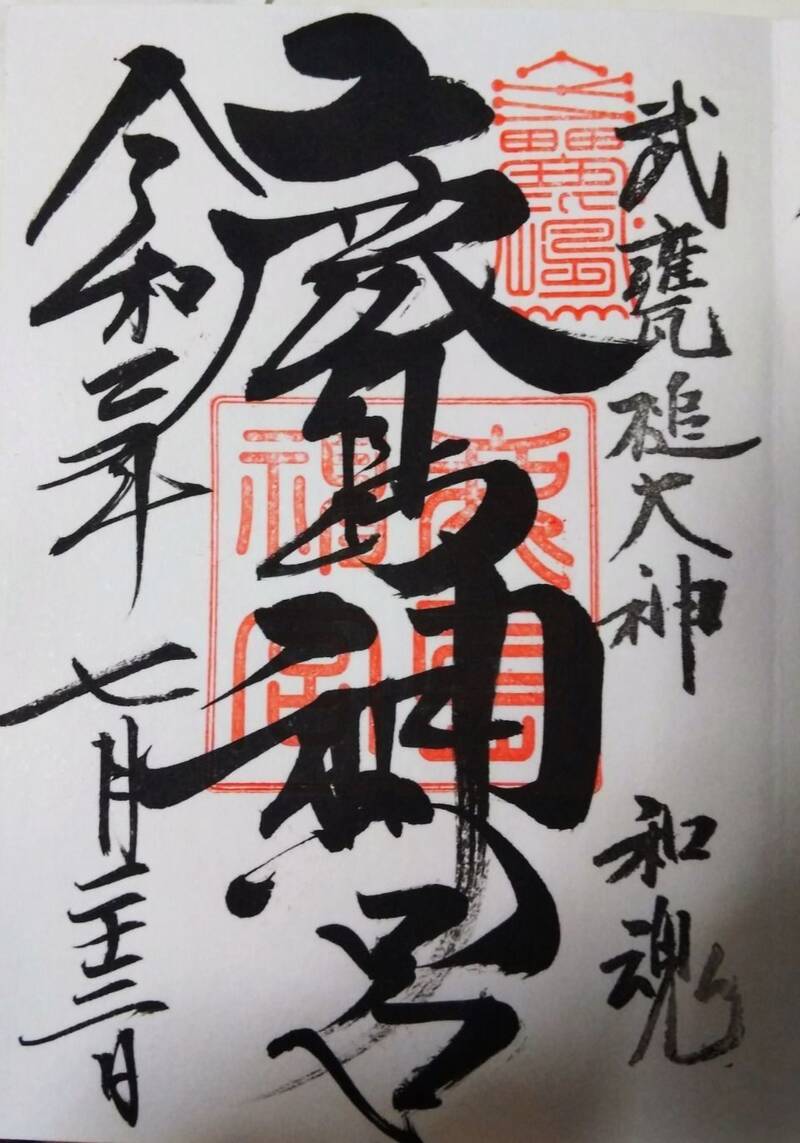 武甕槌大神 和魂
鹿島神宮
令和二年七月二十三日
鹿島
神宮